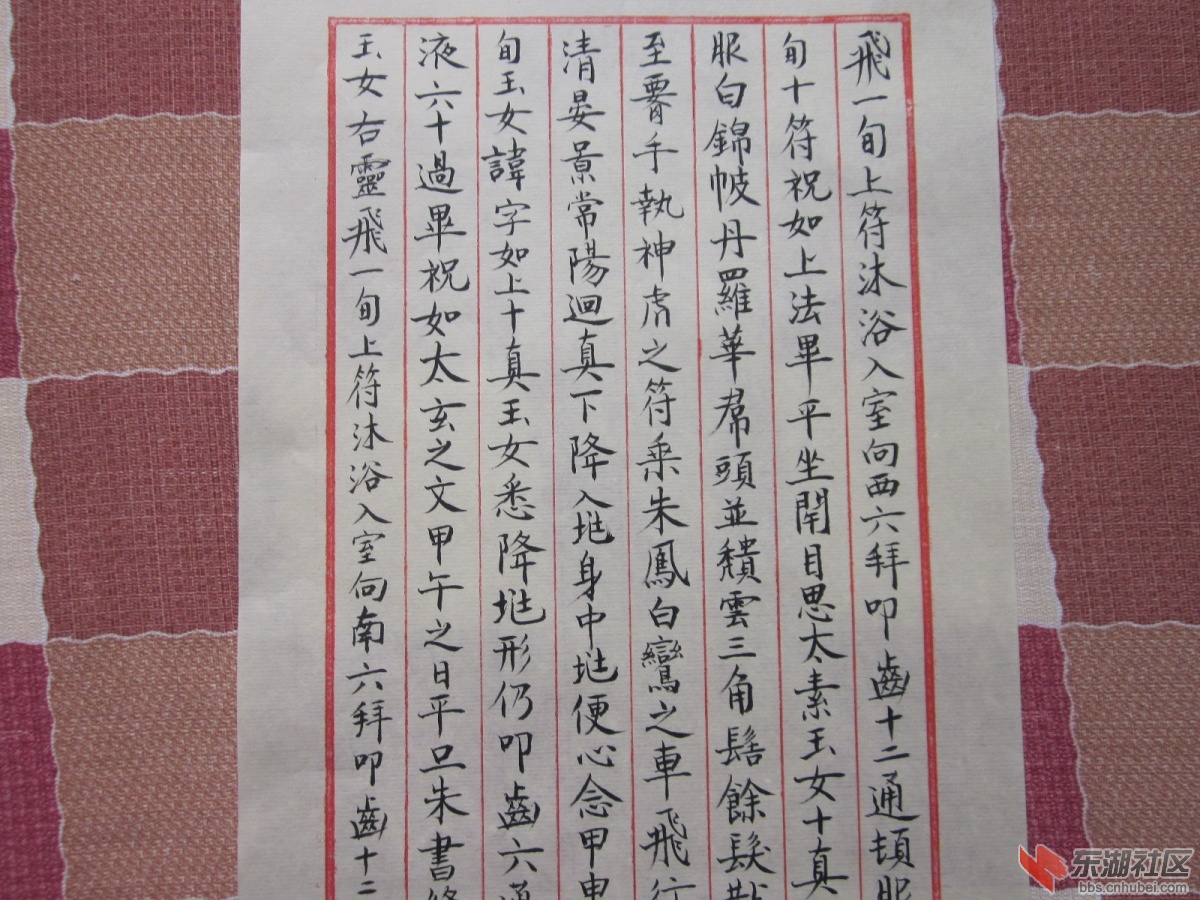 飛一旬上符沐浴入室向西六拜叩齒十二通頓服
旬十符祝如上法畢平坐閉目思太素玉女十真
服白錦帔丹羅華帬頭並穨雲三角髻餘髮散
至要手執神虎之符乘朱鳳白鸞之車飛行
清晏景常陽迴真下降入地身中地便心念甲申
旬玉女諱字如上十真玉女悉降地形仍叩齒六通
液六十過畢祝如太玄之文甲午之日平旦朱書
玉女右靈飛一旬上符沐浴入室向南六拜叩齒十二
东湖社区
bbs.cnhubei.com